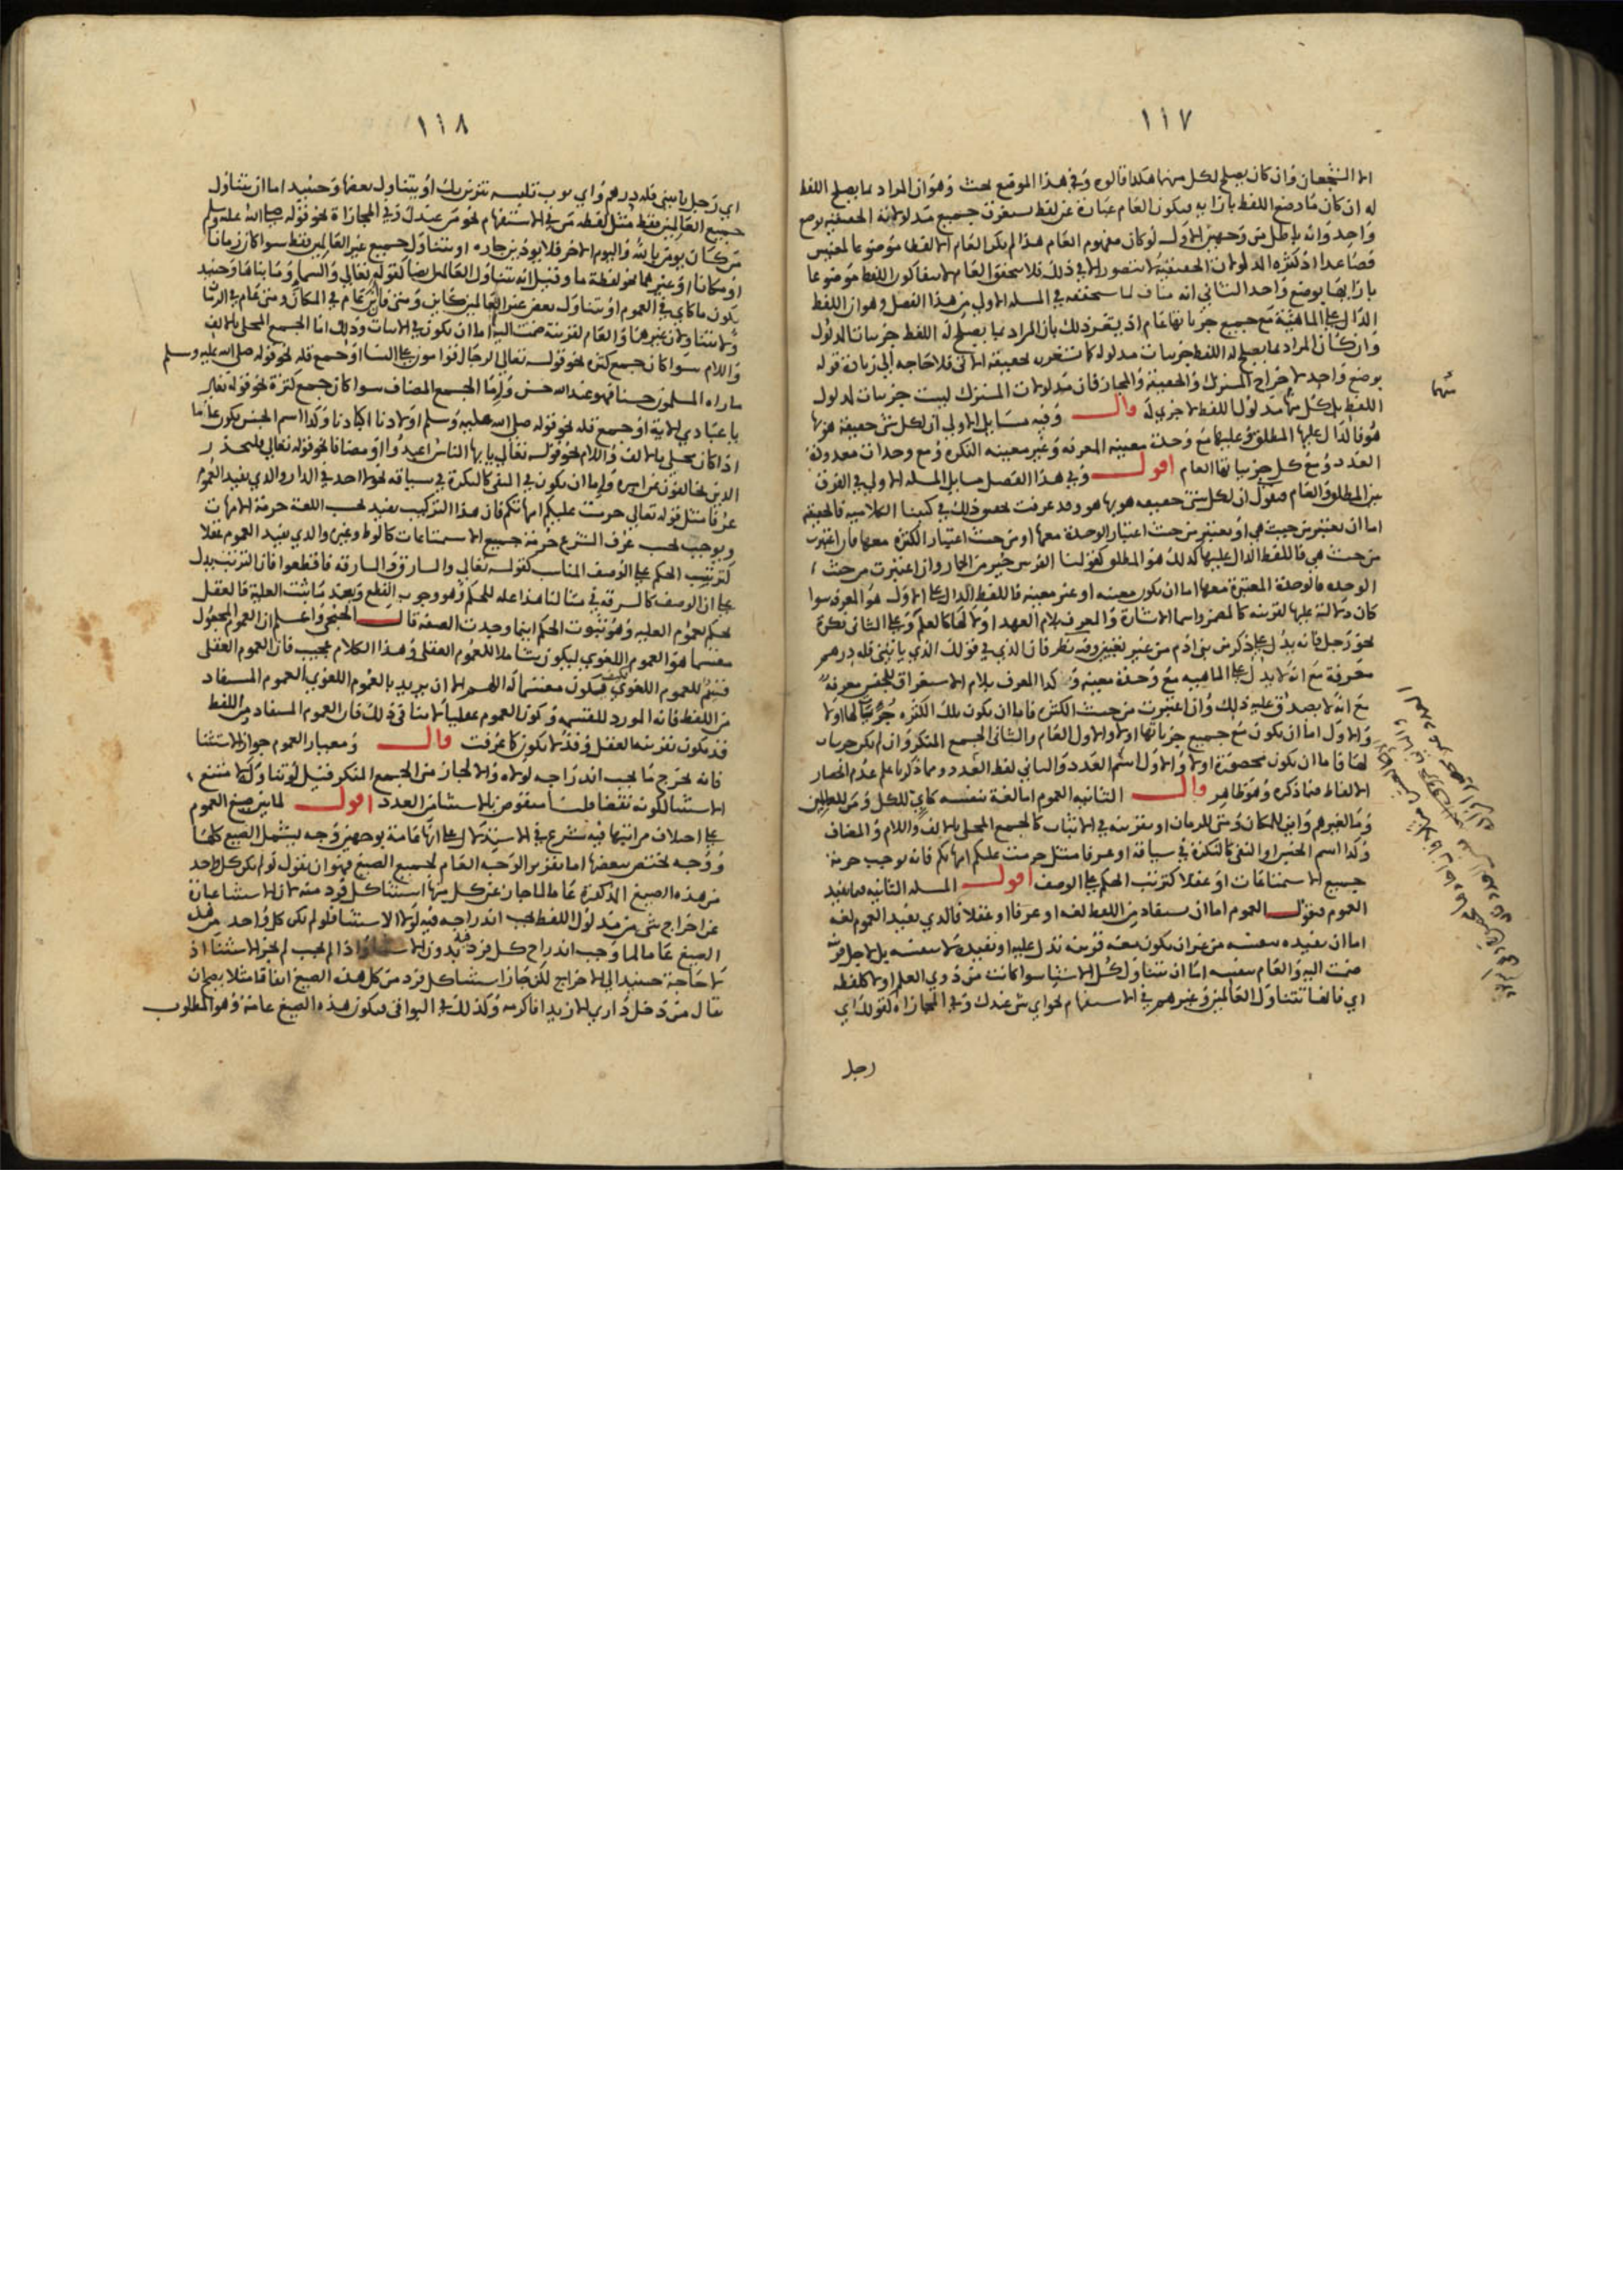 ١١٧
الا الشجعان وان كان يصلح لكل منهما هكذا قالوه وفي هذا الموضع بحث وهو ان المراد بما يصلح اللفظ
له ان كان ما وضع اللفظ بازايه فيكون العام عبارة عن لفظ يستغرق جميع مدلولاته الحقيقية بوضع
واحد وانه باطل من وجهين الاول لو كان مفهوم العام هذا لم يكن العام الا لفظا موضوعا لمعنيين
فصاعدا اذ كثرة المدلولات الحقيقية لا تتصور الا في ذلك فلا يتحقق العام لاستحالة كون اللفظ موضوعا
بازايها بوضع واحد الثاني انه مناف لما سيحققه في المسله الاولي من هذا الفصل وهو ان اللفظ
الدال على الماهية مع جميع جزياتها عام اذ يتقرر ذلك بان المراد بما يصلح له اللفظ جزييات المدلول
وان كان المراد بما يصلح له اللفظ جزييات مدلوله فلا حاجه الى زيادة قوله
بوضع واحد لاخراج المشترك والحقيقة والمجاز فان مدلولات المشترك ليست جزييات لمدلول
اللفظ بل كل منها مدلول اللفظ لا جزي له قال وفيه مسايل الاولى ان لكل شي حقيقة هو بها
هو فالدال عليها المطلق وعليها مع وحدة معينه المعرفه وغير معينه النكره ومع وحدات معدودة
العدد ومع كل جزيياتها العام اقول وفي هذا الفصل مسايل المسله الاولي في الفرق
بين المطلق والعام فنقول ان لكل شي حقيقه هو بها هو وقد عرفت تحقيق ذلك في كتبنا الكلاميه فالحقيقه
اما ان تعتبر من حيث هي او تعتبر من حيث اعتبار الوحدة معها او من حيث اعتبار الكثرة معها فان اعتبرت
من حيث هي فاللفظ الدال عليها كذلك هو المطلق كقولنا الفرس خير من الحمار وان اعتبرت من حيث
الوحده فالوحدة المعتبرة معها اما ان تكون معينه او غير معينه فاللفظ الدال على الاول هو المعرفه سوا
كان دلالته عليها لقرينه كالمضمر واسما الاشارة والمعرف بلام العهد او لا لها كالعلم وعلى الثاني نكرة
نحو رجل فانه يدل على ذكر من بني ادم من غير تعيين وفيه نظر فان الذي في قولك الذي ياتيني فله درهم
معرفة مع انه لا يدل على الماهيه مع وحدة معينه وكذا المعرف بلام الاستغراق للجنس معرفة
مع انه لا يصدق عليه ذلك وان اعتبرت من حيث الكثرة فاما ان تكون تلك الكثره جزيياتها اولا
والاول اما ان تكون مع جميع جزياتها اولا والاول العام والثاني الجمع المنكر وان لم تكن جزييات
لها فاما ان تكون محصورة اولا والاول اسم العدد والثاني لفظ العدد ومما ذكرنا علم عدم انحصار
الالفاظ فيما ذكره وهو ظاهر قال الثانيه العموم اما لغة بنفسه كاي للكل ومن للعالمين
وما لغيرهم واين للمكان ومتى للزمان او بقرينه في الاثبات كالجمع المحلى بالالف واللام والمضاف
وكذا اسم الجنس او النفي كالنكرة في سياقه او عرفا مثل حرمت عليكم امهاتكم فانه يوجب حرمة
جميع الاستمتاعات او عقلا كترتيب الحكم على الوصف اقول المسله الثانيه فيما يفيد
العموم فنقول العموم اما ان يستفاد من اللفظ لغه او عرفا او عقلا فالذي يفيد العموم لغه
اما ان يفيده بنفسه من غير ان يكون معه قرينه تدل عليه او يفيده لا بنفسه بل لاجل قرينه
ضمت اليه والعام بنفسه اما ان يتناول كل الاشيا سوا كانت من ذوي العلم اولا كلفظه
اي فانها تتناول العالمين وغيرهم في الاستفهام نحو اي شي عندك وفي المجازاة كقولك اي
رجل
١١٨
اي رجل ياتيني فله درهم واي ثوب تلبسه تتزين بك او يتناول بعضها وحينيد اما ان يتناول
جميع العالمين فقط مثل لفظه من في الاستفهام نحو من عندك وفي المجازاة نحو قوله صلى الله عليه وسلم
من كان يومن بالله واليوم الاخر فلا يوذين جاره او يتناول جميع غير العالمين فقط سوا كان زمانا
او مكانا او غيرهما نحو لفظة ما وقيل انه يتناول العالمين ايضا كقوله تعالى والسما وما بناها وحينيد
يكون ما كاي في العموم او يتناول بعض غير العالمين كاين ومتى فان اين عام في المكان ومتى عام في الزمان
ولا يتناولان غيرهما والعام لقرينة ضمت اليه اما ان يكون في الاثبات وذلك اما الجمع المحلى بالالف
واللام سوا كان جمع كثرة نحو قوله تعالى الرجال قوامون على النسا او جمع قله نحو قوله صلى الله عليه وسلم
ما راه المسلمون حسنا فهو عند الله حسن واما الجمع المضاف سوا كان جمع كثرة نحو قوله تعالى
يا عبادي الاية او جمع قله نحو قوله صلى الله عليه وسلم اولادنا اكبادنا وكذا اسم الجنس يكون عاما
اذا كان محلى بالالف واللام نحو قوله تعالى يا يها الناس اعبدوا او مضافا نحو قوله تعالى فليحذر
الذين يخالفون عن امره واما ان تكون في النفي كالنكرة في سياقه نحو لا احد في الدار والذي يفيد العموم
عرفا مثل قوله تعالى حرمت عليكم امهاتكم فان هذا التركيب يفيد بحسب اللغة حرمة الامهات
ويوجب بحسب عرف الشرع حرمة جميع الاستمتاعات كالوط وغيره والذي يفيد العموم عقلا
كترتيب الحكم على الوصف المناسب كقوله تعالى والسارق والسارقه فاقطعوا فان الترتيب يدل
على ان الوصف كالسرقه في مثالنا هذا عله للحكم وهو وجوب القطع وبعد ما ثبتت العلية فالعقل
يحكم بعموم العليه وهو ثبوت الحكم اينما وجدت الصفة قال الخنجي واعلم ان العموم المجعول
مقسما هو العموم اللغوي ليكون شاملا للعموم العقلي وهذا الكلام عجيب فان العموم العقلي
قسيم للعموم اللغوي فكيف يكون مقسما له اللهم الا ان يريد بالعموم اللغوي العموم المستفاد
من اللفظ فانه المورد للقسمه وكون العموم عقليا لا ينافي ذلك فان العموم المستفاد من اللفظ
قد يكون بقرينه العقل وقد لا يكون كما عرفت قال ومعيار العموم جواز الاستثنا
فانه يخرج ما يجب اندراجه لولاه والا لجاز من الجمع المنكر قيل لو تناوله لامتنع
الاستثنا لكونه نقضا قلنا منقوض بالاستثنا من العدد اقول لما بين صيغ العموم
على اختلاف مراتبها فيه شرع في الاستدلال على انها عامة بوجهين وجه يشمل الصيغ كلها
ووجه يختص ببعضها اما تقرير الوجه العام لجميع الصيغ فهو ان نقول لو لم يكن كل واحد
من هذه الصيغ المذكورة عاما لما جاز عن كل منها استثنا كل فرد منه لان الاستثنا عبارة
عن اخراج شي من مدلول اللفظ يجب اندراجه فيه لولا الاستثنا فلو لم يكن كل واحد من هذه
الصيغ عاما لما وجب اندراج كل فرد فيه بدون الاستثنا واذا لم يجب لم يجز الاستثنا اذ
لا حاجة حينيد الى الاخراج لكن جاز استثنا كل فرد من كل هذه الصيغ اتفاقا مثلا يصح ان
يقال من دخل داري الا زيدا فاكرمه وكذلك في البواقي فيكون هذه الصيغ عامة وهو المطلوب